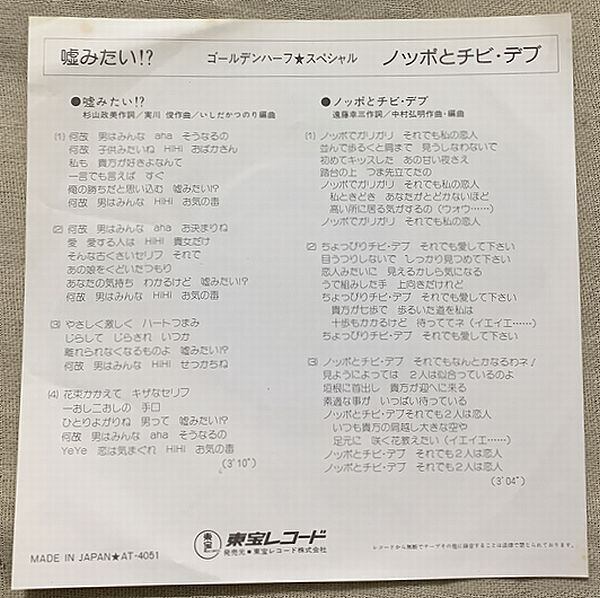 嘘みたい!? ゴールデンハーフ★スペシャル ノッポとチビ・デブ
●嘘みたい!?
杉山政美作詞/実川 俊作曲/いしだかつのり編曲
(1) 何故 男はみんな aha そうなるの
何故 子供みたいね HiHi おばかさん
私も 貴方が好きよなんて
一言でも言えば すぐ
俺の勝ちだと思い込む 嘘みたい!?
何故 男はみんな HiHi お気の毒
(2) 何故 男はみんな aha お決まりね
愛 愛する人は HiHi 貴女だけ
そんな古くさいセリフ それで
あの娘をくどいたつもり
あなたの気持ち わかるけど 嘘みたい!?
何故 男はみんな HiHi お気の毒
(3) やさしく激しく ハートつまみ
じらして じらされ いつか
離れられなくなるものよ 嘘みたい!?
何故 男はみんな HiHi せっかちね
(4) 花束かかえて キザなセリフ
一おし二おしの 手口
ひとりよがりね 男って 嘘みたい!?
何故 男はみんな aha そうなるの
YeYe 恋は気まぐれ HiHi お気の毒
(3′10″)
●ノッポとチビ・デブ
遠藤幸三作詞/中村弘明作曲・編曲
(1) ノッポでガリガリ それでも私の恋人
並んで歩くと肩まで 見うしなわないで
初めてキッスした あの甘い夜さえ
踏台の上 つま先立てたの
ノッポでガリガリ それでも私の恋人
私ときどき あなたがとどかないほど
高い所に居る気がするの (ウォウ……)
ノッポでガリガリ それでも私の恋人
(2) ちょっぴりチビ・デブ それでも愛して下さい
目うつりしないで しっかり見つめて下さい
恋人みたいに 見えるかしら気になる
うで組みした手 上向きだけれど
ちょっぴりチビ・デブ それでも愛して下さい
貴方が七歩で 歩るいた道を私は
十歩もかかるけど 待っててネ (イエイエ……)
ちょっぴりチビ・デブ それでも愛して下さい
(3) ノッポとチビ・デブ それでもなんとかなるわネ!
見ようによっては 2人は似合っているのよ
垣根に首出し 貴方が迎へに来る
素適な事が いっぱい待っている
ノッポとチビ・デブそれでも2人は恋人
いつも貴方の肩越し大きな空や
足元に 咲く花教えたい (イエイエ……)
ノッポとチビ・デブ それでも2人は恋人
ノッポとチビ・デブ それでも2人は恋人
(3′04″)
東宝 東宝レコード
発売元■東宝レコード株式会社
MADE IN JAPAN★AT-4051
レコードから無断でテープその他に録音することは法律で禁じられております。